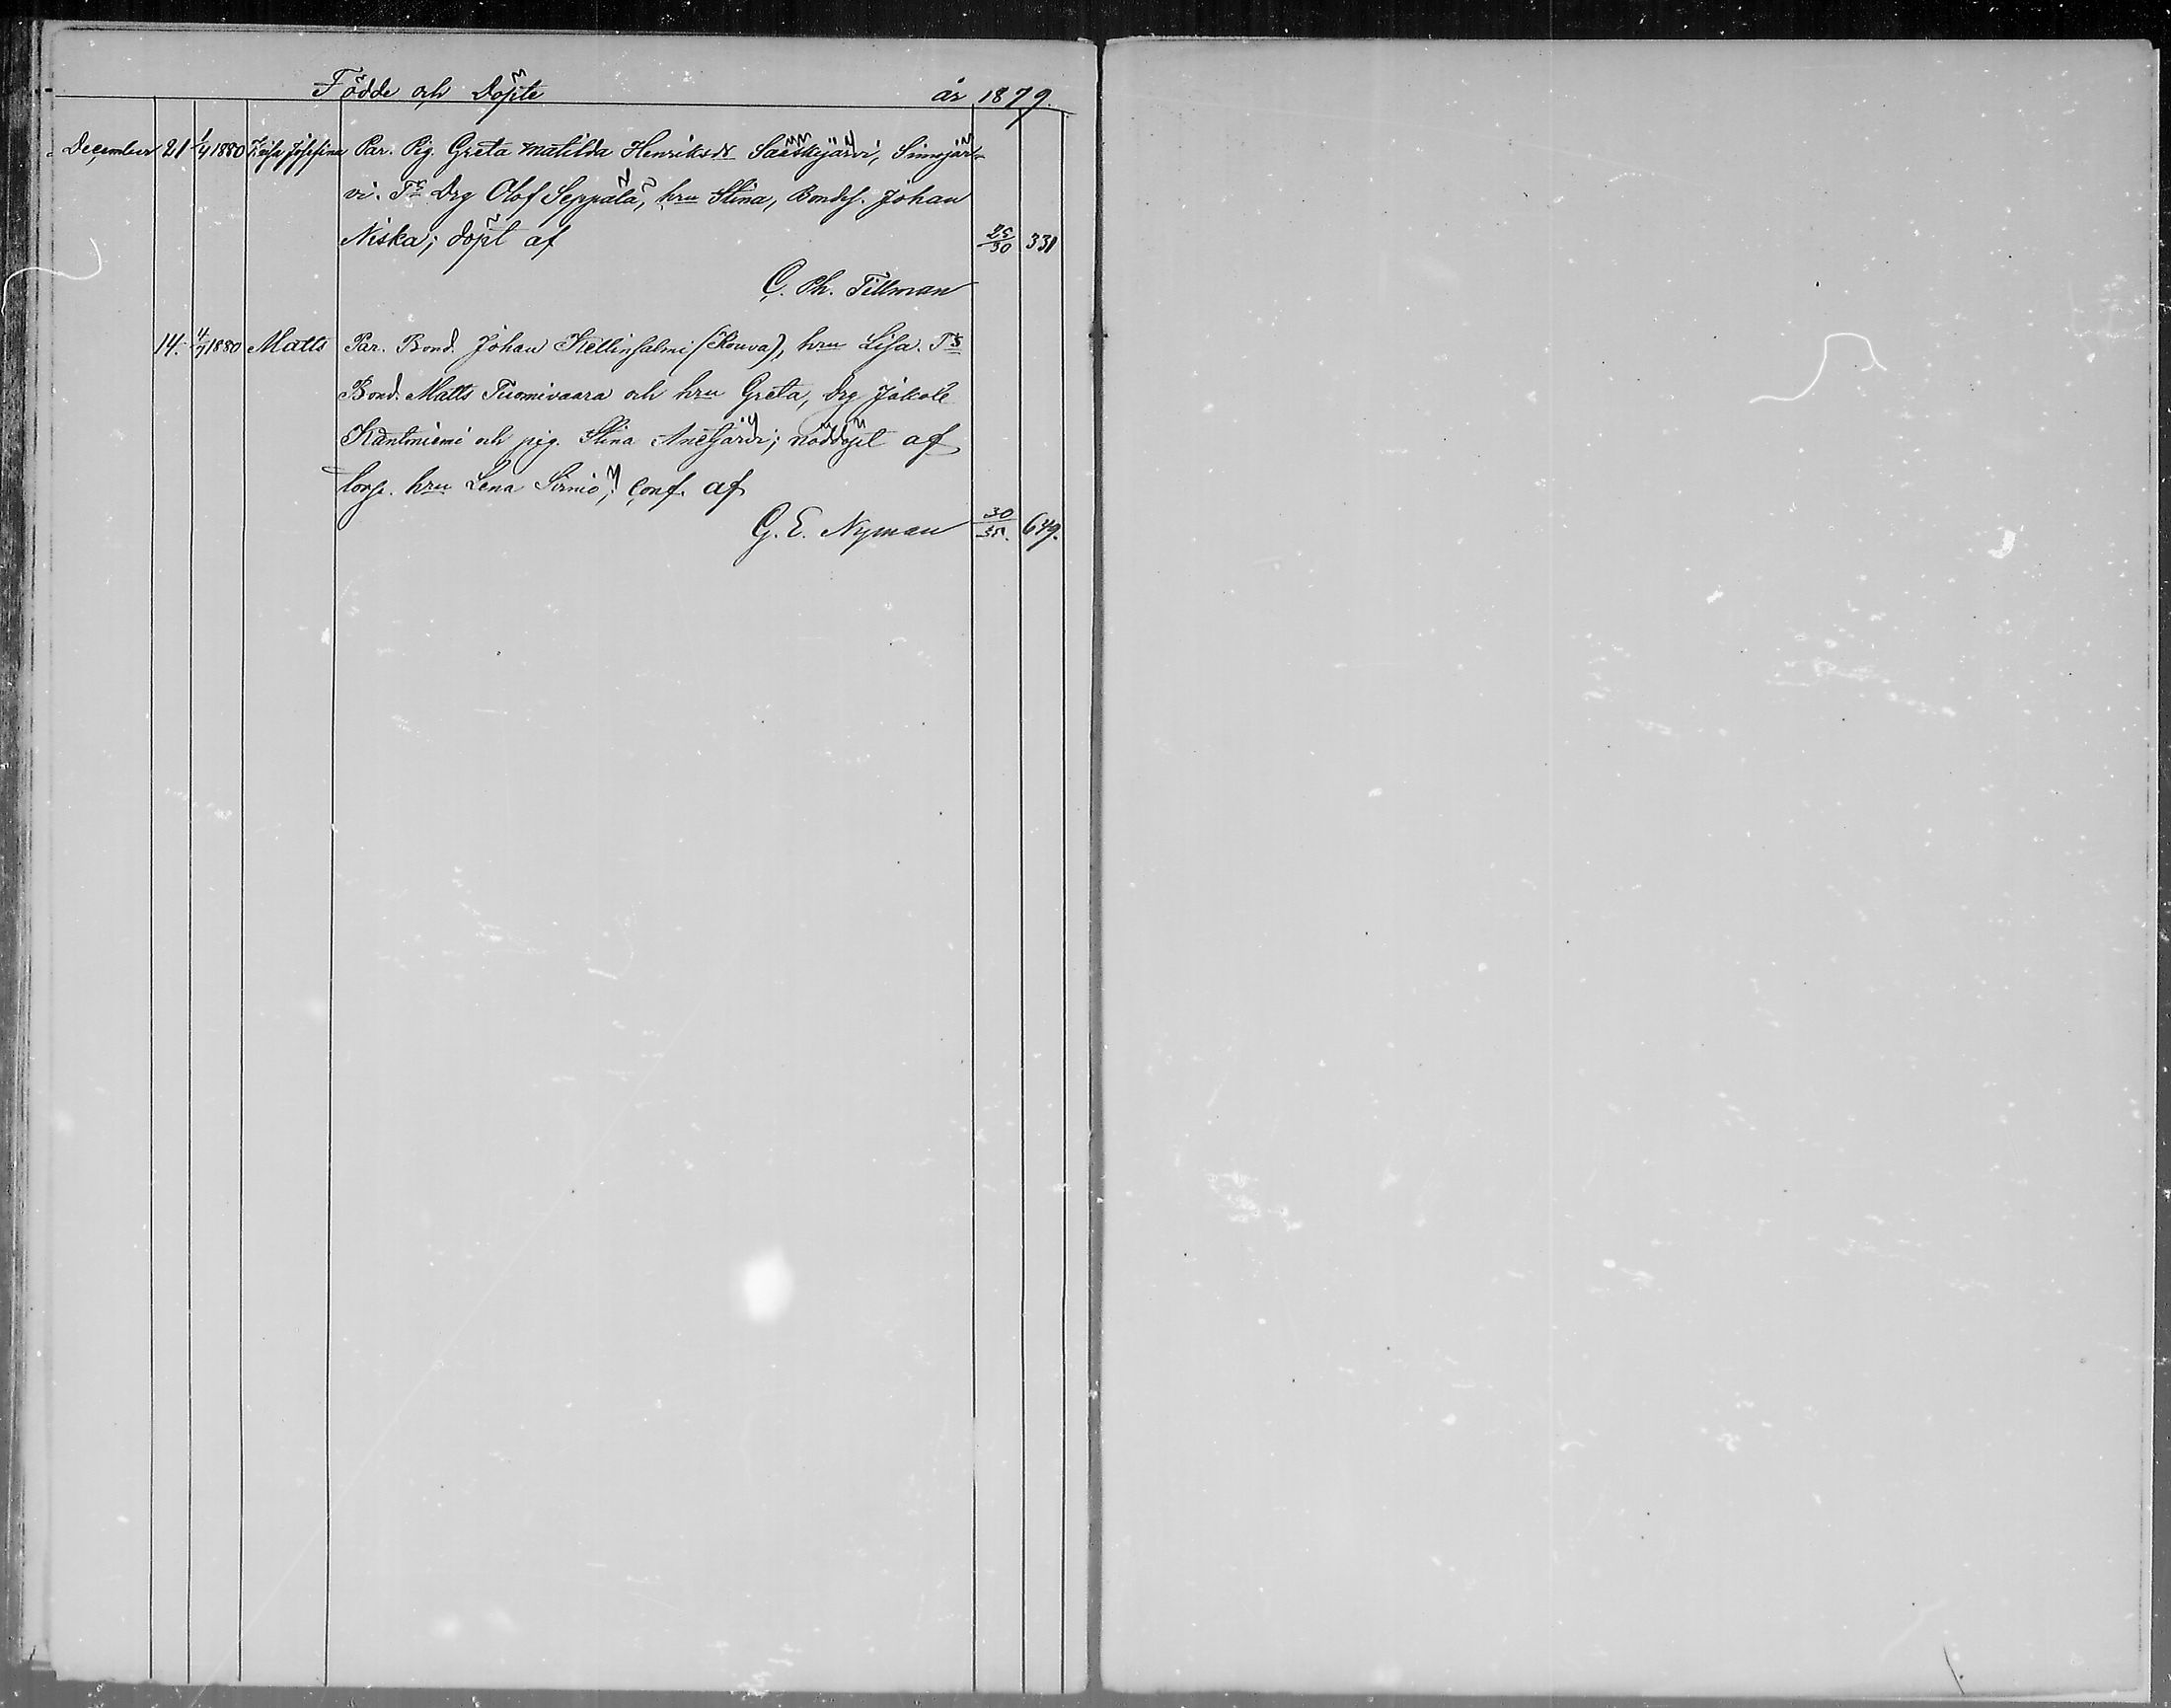 Födde och Döpte år 1879.
December 21 1/1 1880 Kaisa Josefina Par. Pig. Greta Matilda Henriksdr Sääskijärvi, Simojär-
vi. Ts Drg Olof Seppälä, hru Stina, Bondes. Johan
Niska; döpt af 25/30 331
C. Ph. Tillman
14. 4/1 1880 Matts Par. Bond. Johan Kellinsalmi (Kouva), hru Lisa. Ts
Bond. Matts Tuomivaara och hru Greta, drg Jakob
Kantoniemi och pig. Stina Anetjärvi; nöddöpt af
torp. hru Lena Sirniö; conf. af
G. E. Nyman 30/35. 649.